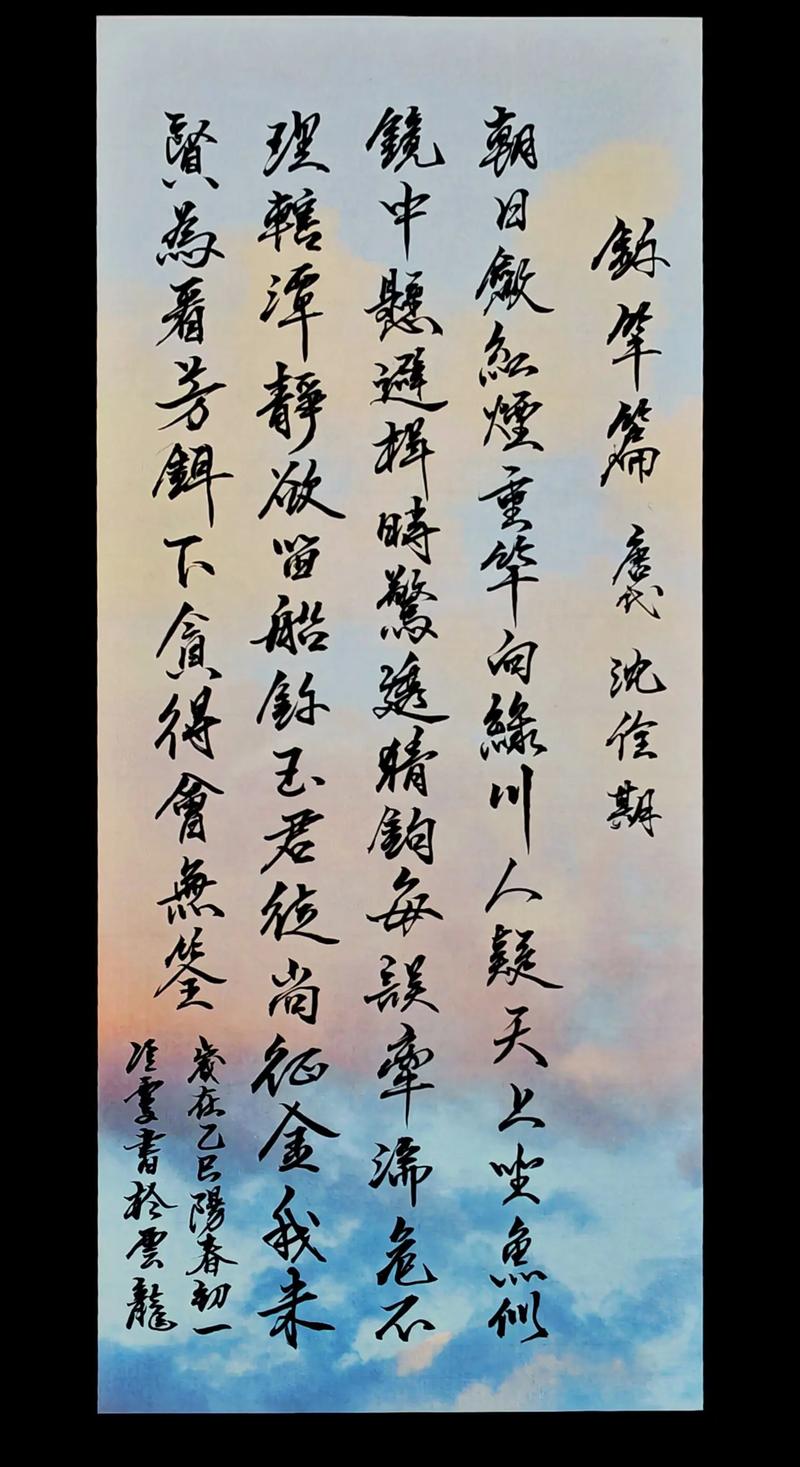 釣竿篇 唐代 沈佺期
朝日斂紅煙垂竿向綠川人疑天上坐魚似
鏡中懸避楫時驚透猜鉤每誤牽湍危不
理轄潭靜欲留船釣玉君徒尚征金我未
賢為看芳餌下貪得會無筌
歲在乙巳陽春初一
書於雲龍